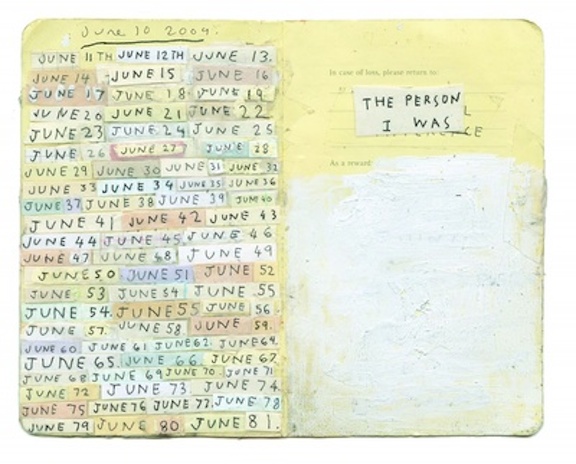 June 10 2009.
JUNE 11TH JUNE 12TH JUNE 13.
JUNE 14 JUNE 15 JUNE 16
JUNE 17 JUNE 18 JUNE 19
JUNE 20 JUNE 21 JUNE 22
JUNE 23 JUNE 24 JUNE 25
JUNE 26 JUNE 27 JUNE 28
JUNE 29 JUNE 30 JUNE 31 JUNE 32
JUNE 33 JUNE 34 JUNE 35 JUNE 36
JUNE 37 JUNE 38 JUNE 39 JUNE 40
JUNE 41 JUNE 42 JUNE 43
JUNE 44 JUNE 45 JUNE 46
JUNE 47 JUNE 48 JUNE 49
JUNE 50 JUNE 51 JUNE 52
JUNE 53 JUNE 54 JUNE 55
JUNE 54. JUNE 55 JUNE 56
JUNE 57. JUNE 58 JUNE 59.
JUNE 60 JUNE 61 JUNE 62. JUNE 64.
JUNE 65. JUNE 66. JUNE 67.
JUNE 68 JUNE 69 JUNE 70 JUNE 71
JUNE 72 JUNE 73 JUNE 74
JUNE 75 JUNE 76 JUNE 77. JUNE 78
JUNE 79 JUNE 80 JUNE 81.
In case of loss, please return to:
THE PERSON
I WAS
As a reward